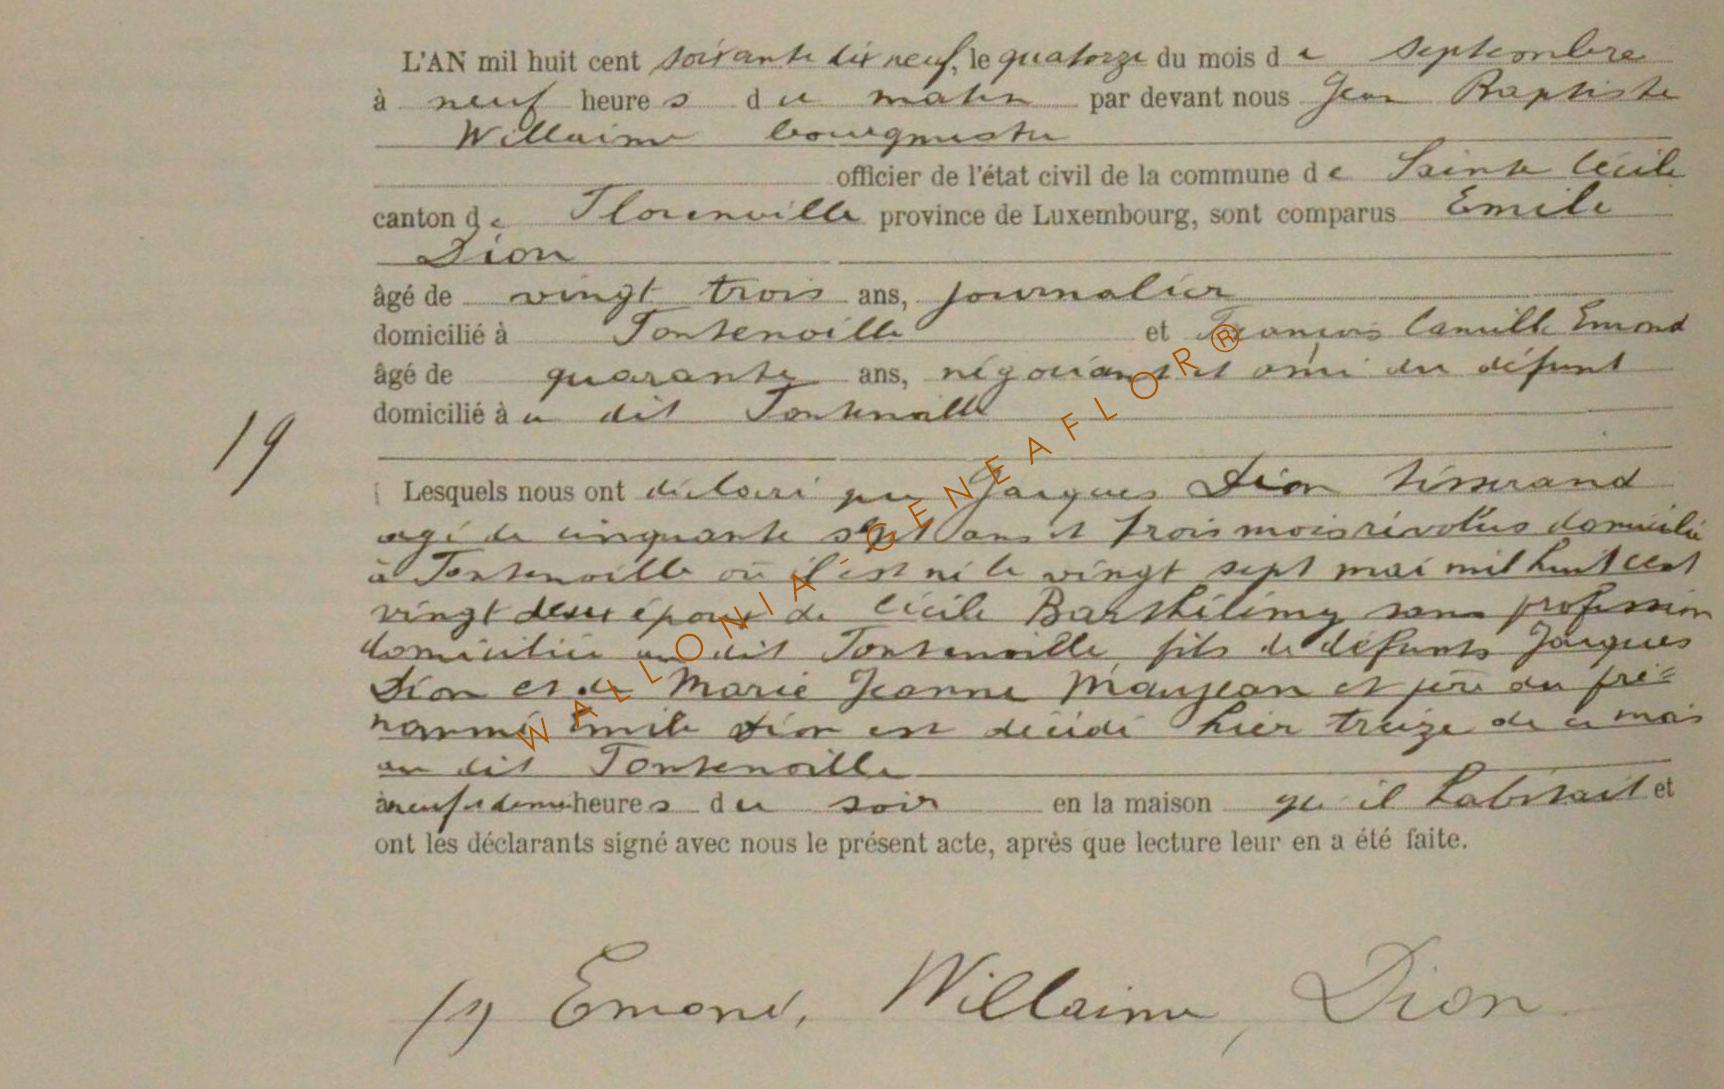 L'AN mil huit cent soixante dix neuf, le quatorze du mois de septembre
à neuf heures du matin par devant nous Jean Baptiste
Willaime bourgmestre
officier de l'état civil de la commune de Sainte Cécile
canton de Florenville province de Luxembourg, sont comparus Emile
Dion
âgé de vingt trois ans, journalier
domicilié à Fontenoille et François Camille Emond
âgé de quarante ans, négociant et ami du défunt
domicilié à u dit Fontenoille
19
Lesquels nous ont déclaré que Jacques Dion tisserand
agé de cinquante sept ans et trois mois révolus domicilié
à Fontenoille où il est né le vingt sept mai mil huit cent
vingt deux époux de Cécile Barthélémy sans profession
domiciliée au dit Fontenoille, fils de défunts Jacques
Dion et de Marie Jeanne Maujean et père du pré=
nommé Emile Dion est décédé hier treize de ce mois
au dit Fontenoille
à neuf et demie heures du soir en la maison qu'il habitait et
ont les déclarants signé avec nous le présent acte, après que lecture leur en a été faite.
(s) Emond, Willaime, Dion
WALLONIA - GENEAFLOR®